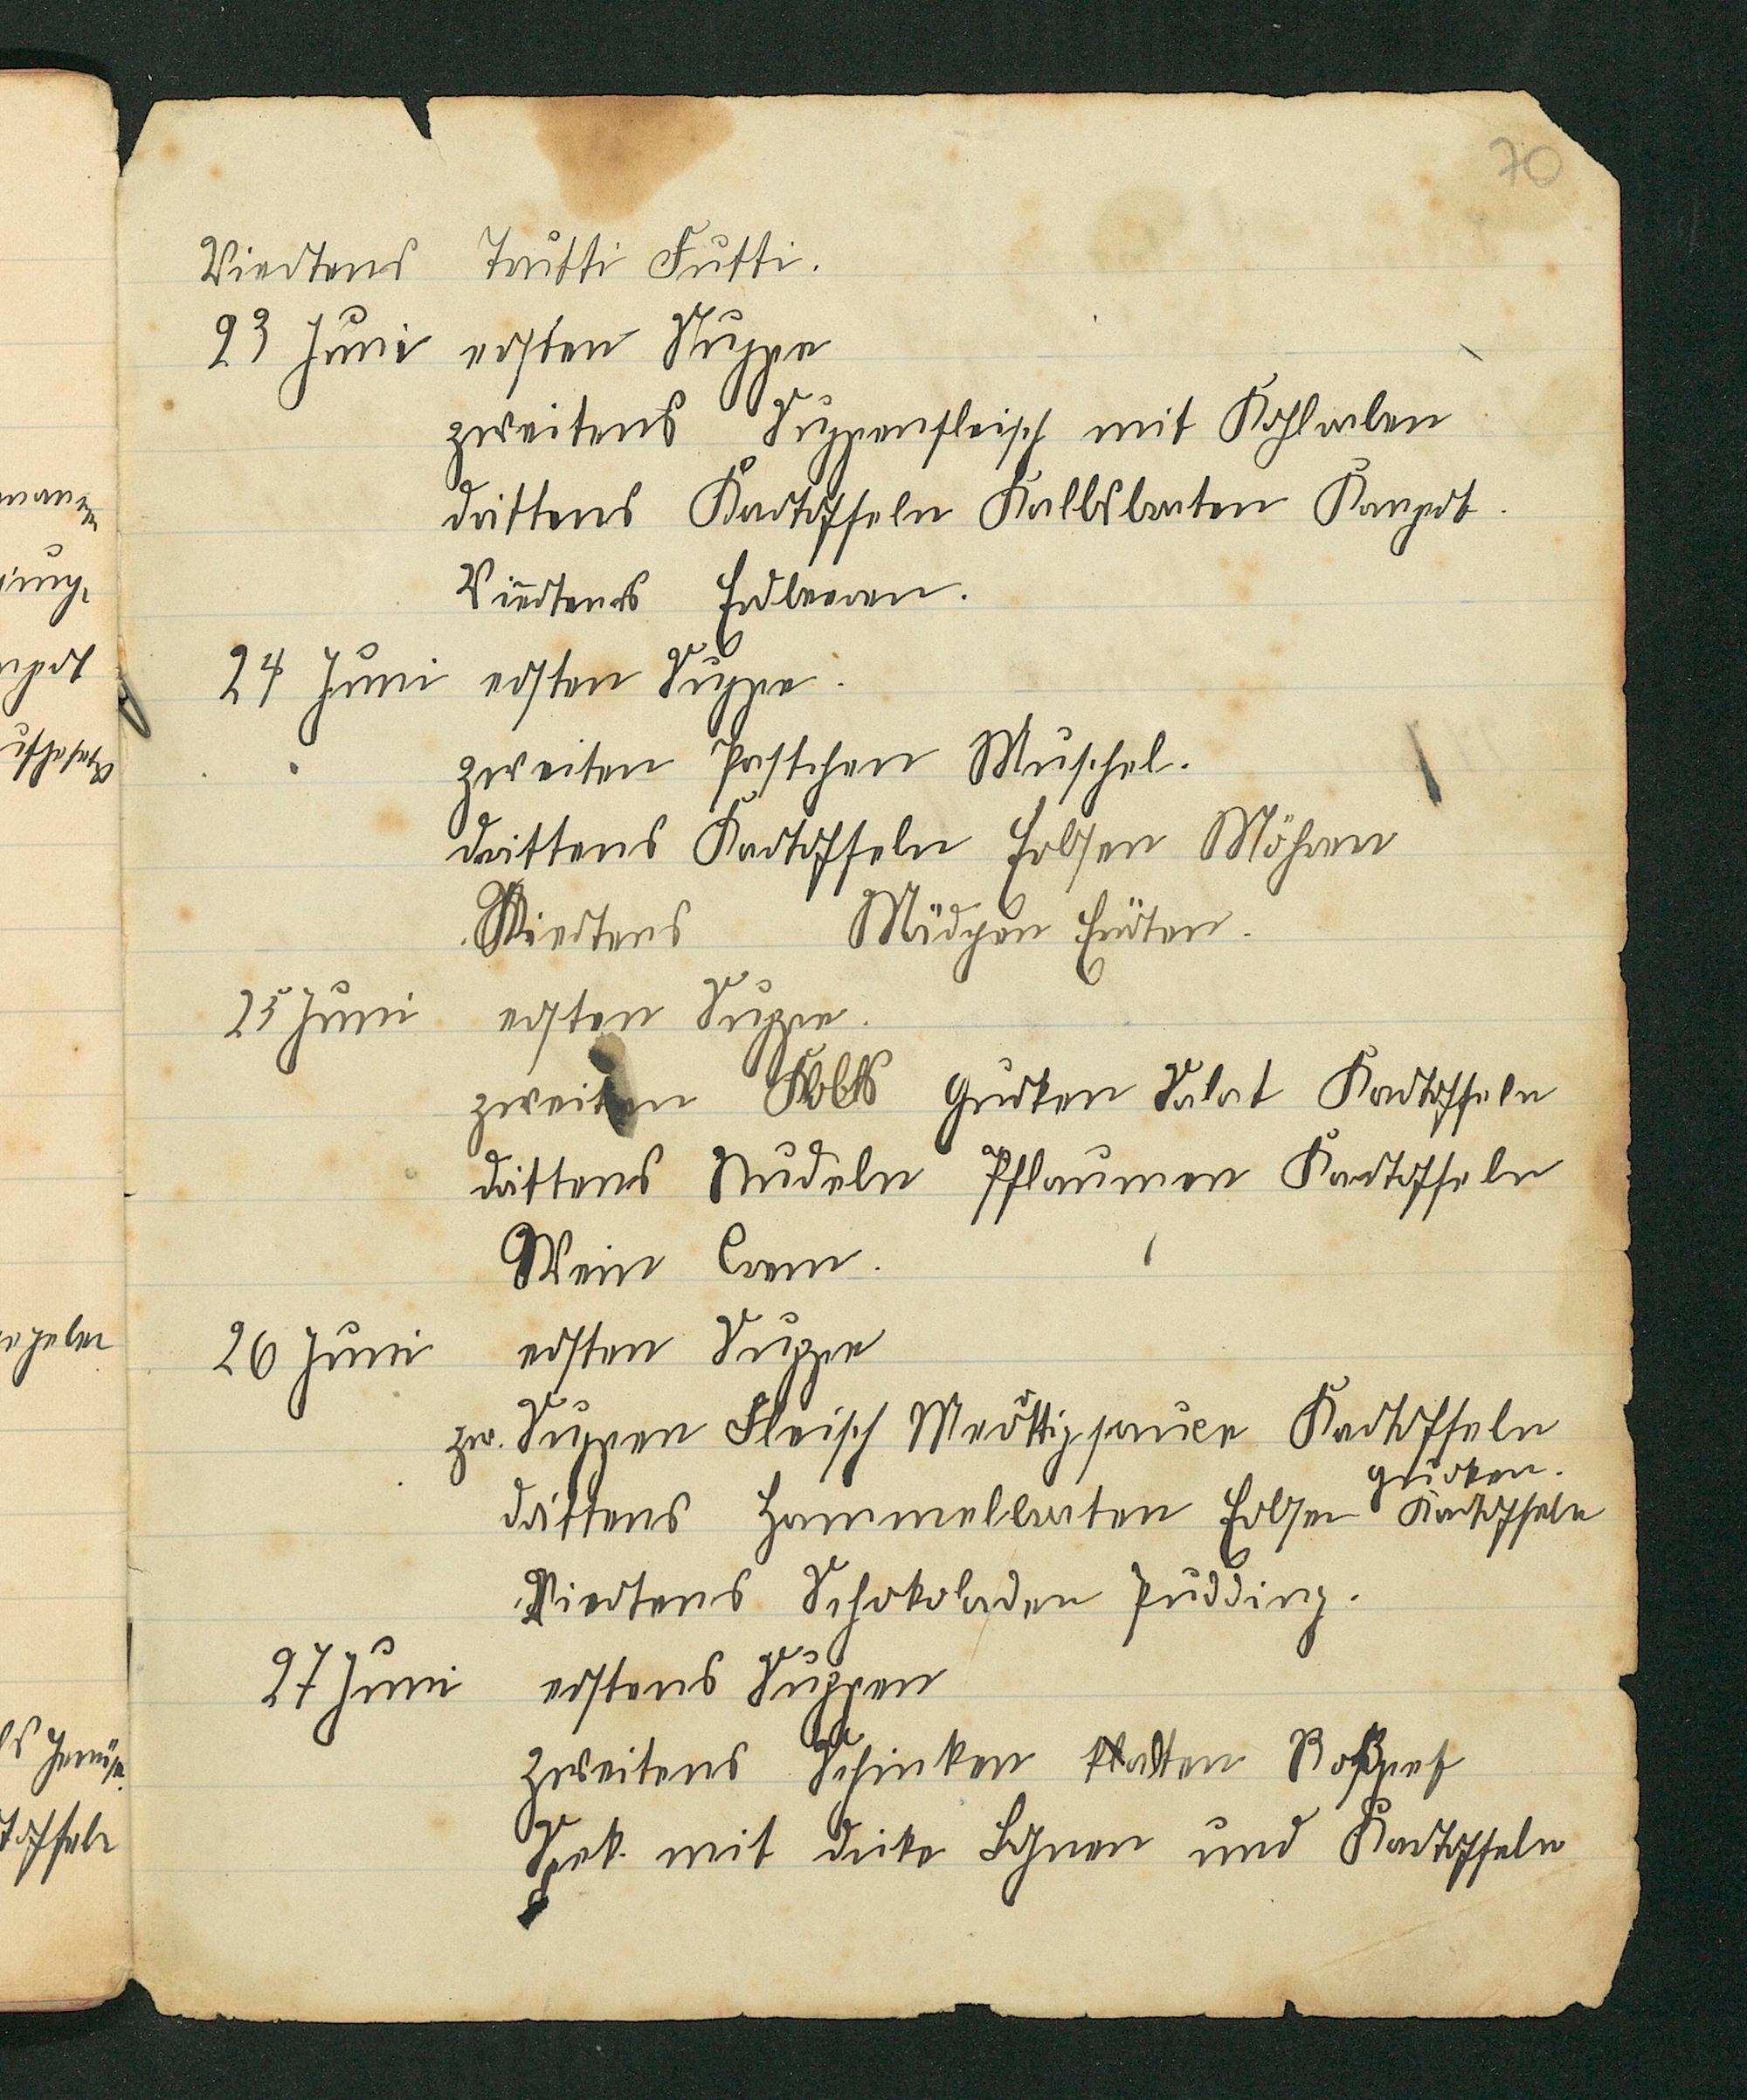 70
Viertens Trutti Futti.
23 Juni ersten Suppe
zweitens Suppenfleisch mit Kohlraben
drittens Kartoffeln Kalbsbraten Kompot.
Viertens Erdbeeren.
24 Juni ersten Suppe.
zweiten Pastchen Muschel.
drittens Kartoffeln Erbsen Möhren
Viertens Mädchen
25 Juni ersten Suppe.
zweiten Gurken Salat Kartoffeln
drittens Nudeln Pflaumen Kartoffeln
Wein Crem.
26 Juni ersten Suppe
zw. Suppen Fleisch Kartoffeln
Gurken.
drittens Hammelbraten Erbsen Kartoffeln
Viertens Schokoladen Pudding.
27 Juni erstens Suppen
zweitens Schinken
Spek mit dicke Bohnen und Kartoffeln